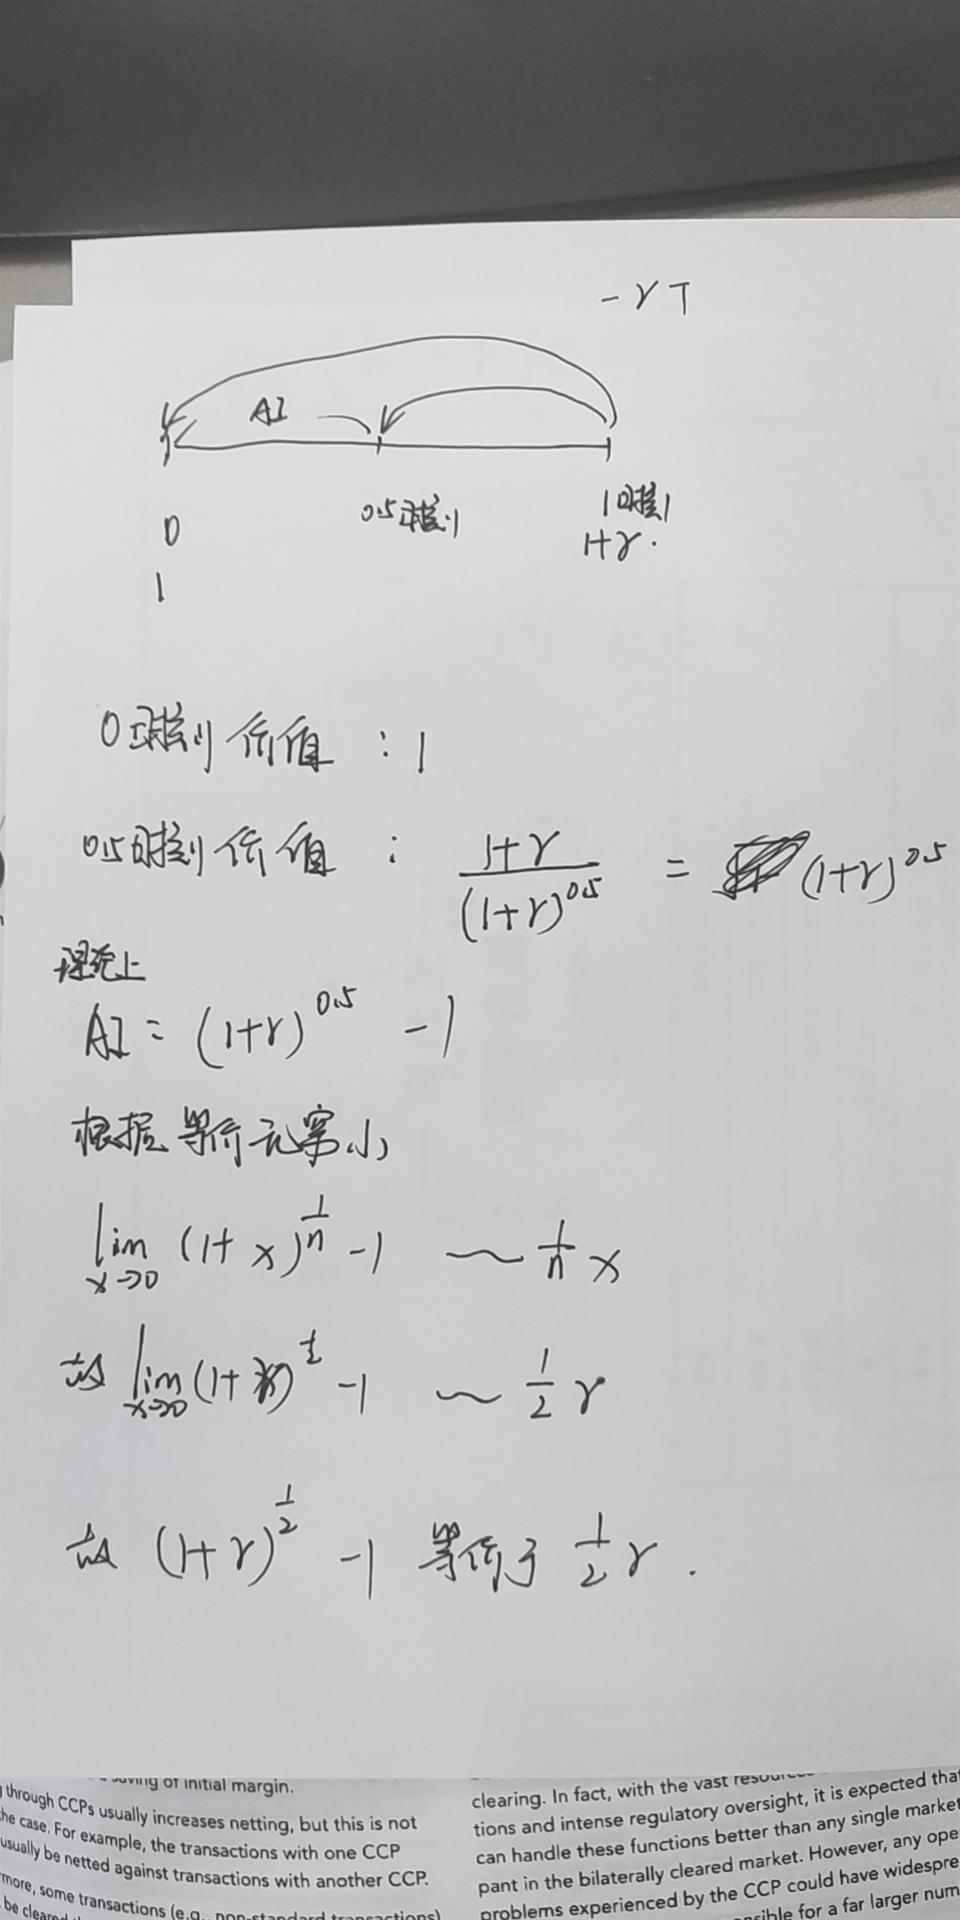 -γT
AI
0 0.5时刻 1时刻
1 1+γ.
0时刻价值:1
0.5时刻价值: (1+γ)/(1+γ)^0.5 = (1+γ)^0.5
理论上
AI = (1+γ)^0.5 -1
根据等价无穷小
lim x→0 (1+x)^(1/n) -1 ~ 1/n x
故 lim x→0 (1+γ)^(1/2) -1 ~ 1/2 γ
故 (1+γ)^(1/2) -1 等价于 1/2 γ.
saving of initial margin.
through CCPs usually increases netting, but this is not
he case. For example, the transactions with one CCP
usually be netted against transactions with another CCP.
more, some transactions (e.g., non-standard transactions)
be cleared
clearing. In fact, with the vast resources
tions and intense regulatory oversight, it is expected that
can handle these functions better than any single market
pant in the bilaterally cleared market. However, any ope
problems experienced by the CCP could have widespre
sible for a far larger num